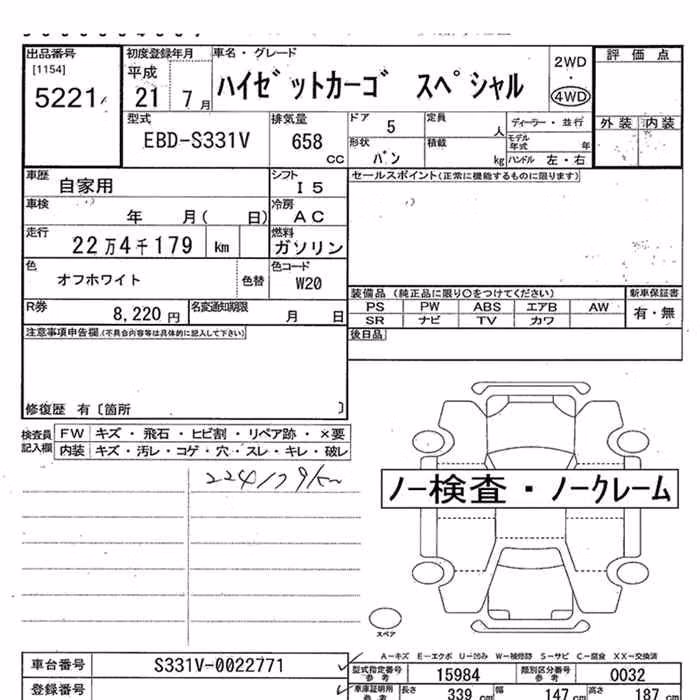 出品番号
[1154]
5221
初度登録年月
平成
21 7 月
車名・グレード
ハイゼットカーゴ スペシャル
2WD
・
4WD
評価点
外装 内装
型式
EBD-S331V
排気量
658
CC
ドア 5
定員 人
ディーラー・並行
形状 バン
積載 kg
モデル年式 年
ハンドル 左・右
車歴 自家用
シフト I5
車検 年 月( 日)
冷房 AC
走行 22万4千179 km
燃料 ガソリン
色 オフホワイト
色替
色コード W20
R券 8,220円
名変通知期限 月 日
セールスポイント(正常に機能するものに限ります)
装備品 (純正品に限り○をつけてください)
新車保証書
PS PW ABS エアB AW
SR ナビ TV カワ
有・無
後日品
注意事項申告欄.(不具合内容等は具体的に記入して下さい)
修復歴 有〔箇所 〕
検査員記入欄
FW キズ・飛石・ヒビ割・リペア跡・×要
内装 キズ・汚レ・コゲ・穴・スレ・キレ・破レ
224179km
ノー検査・ノークレーム
スペア
A－キズ E－エクボ U－凹み W－補修跡 S－サビ C－腐食 XX－交換済
車台番号 S331V-0022771
登録番号
型式指定番号 参考 15984
類別区分番号 参考 0032
車庫証明用 参考
長さ 339 cm
幅 147 cm
高さ 187 cm